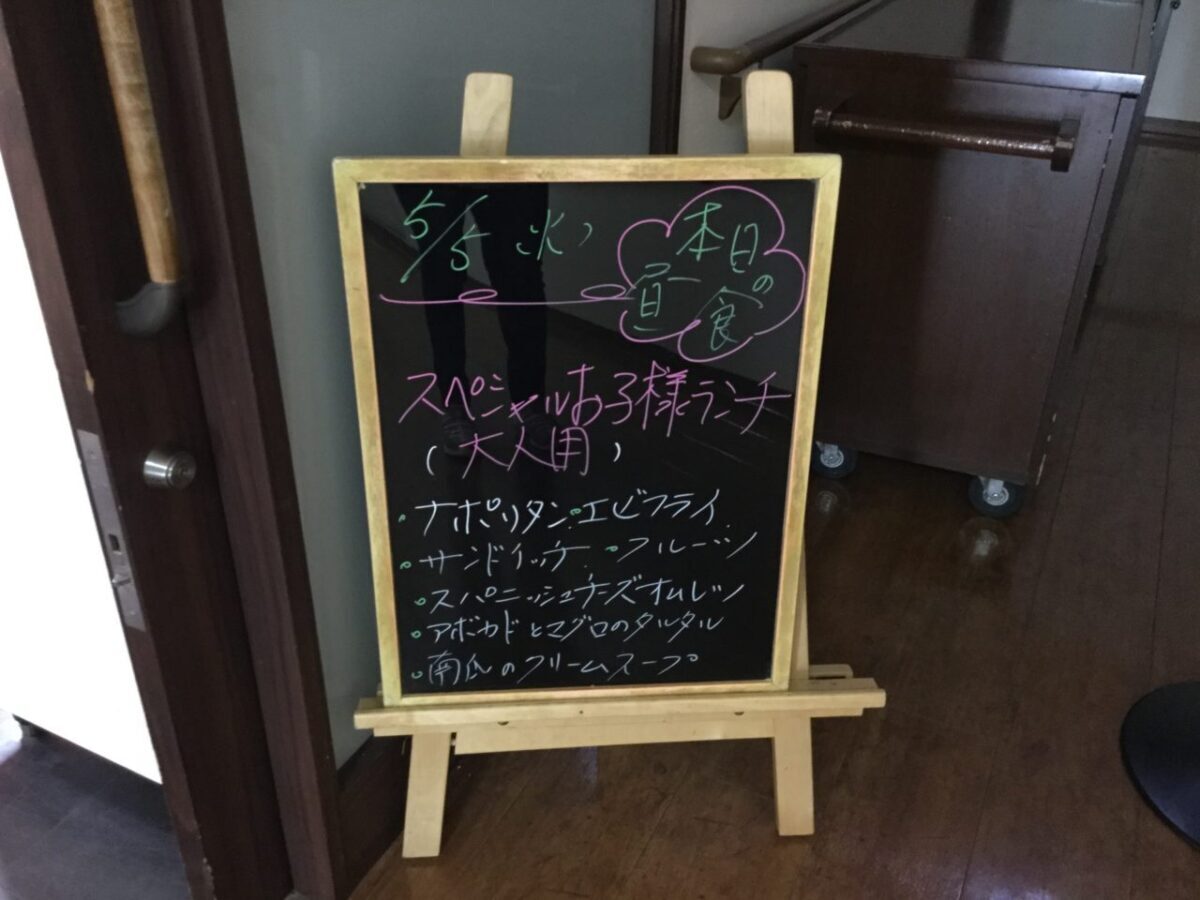 5/5 火
本日の
昼食
スペシャルお子様ランチ
(大人用)
・ナポリタン ・エビフライ
・サンドイッチ ・フルーツ
・スパニッシュチーズオムレツ
・アボカドとマグロのタルタル
・南瓜のクリームスープ